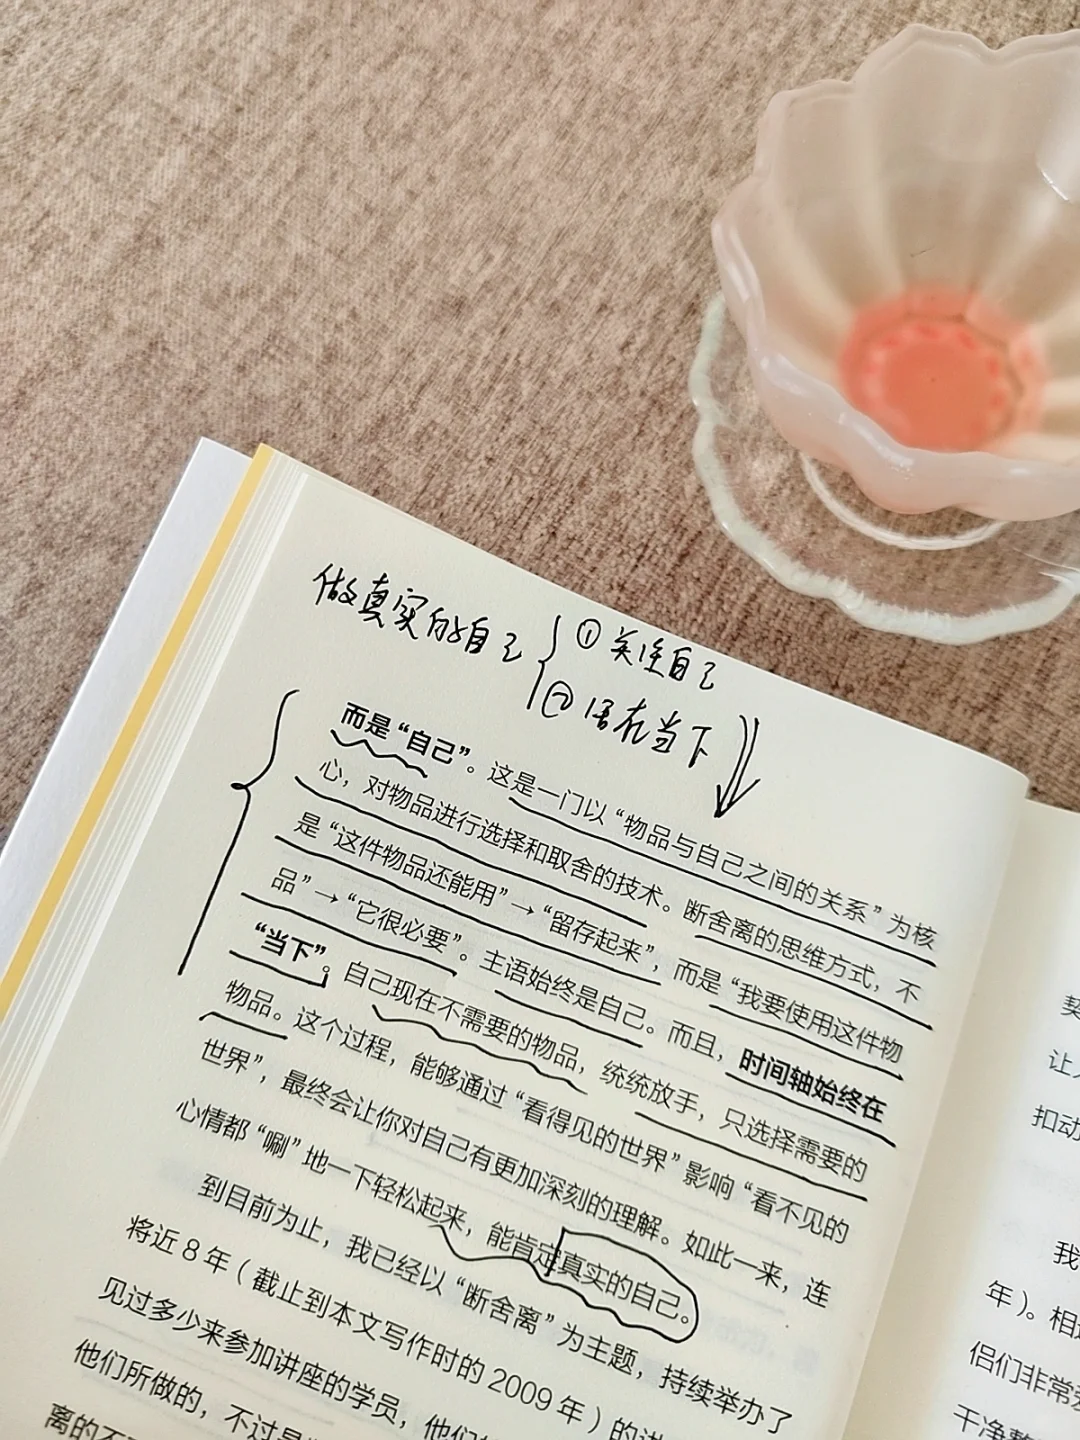 做真实的自己
①关注自己
②活在当下
而是“自己”。这是一门以“物品与自己之间的关系”为核
心，对物品进行选择和取舍的技术。断舍离的思维方式，不
是“这件物品还能用”→“留存起来”，而是“我要使用这件物
品”→“它很必要”。主语始终是自己。而且，时间轴始终在
“当下”。自己现在不需要的物品，统统放手，只选择需要的
物品。这个过程，能够通过“看得见的世界”影响“看不见的
世界”，最终会让你对自己有更加深刻的理解。如此一来，连
心情都“唰”地一下轻松起来，能肯定真实的自己。
到目前为止，我已经以“断舍离”为主题，持续举办了
将近8年（截止到本文写作时的2009年）的讲
见过多少来参加讲座的学员，他们
他们所做的，不过是
离的不
契
让
扣动
我
年）。相
侣们非常
干净整